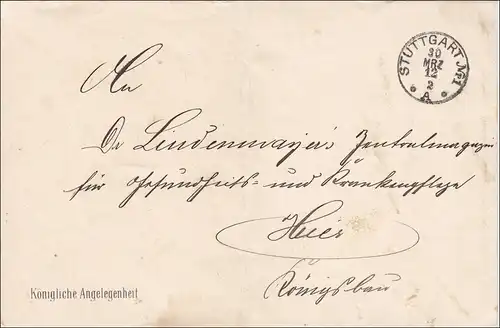 STUTTGART № 1
30
MRZ
12
2
* A *
An
Dr Lindenmayer's Zentralmagazin
für Gesundheits- und Krankenpflege
Hier
Königsbau
Königliche Angelegenheit